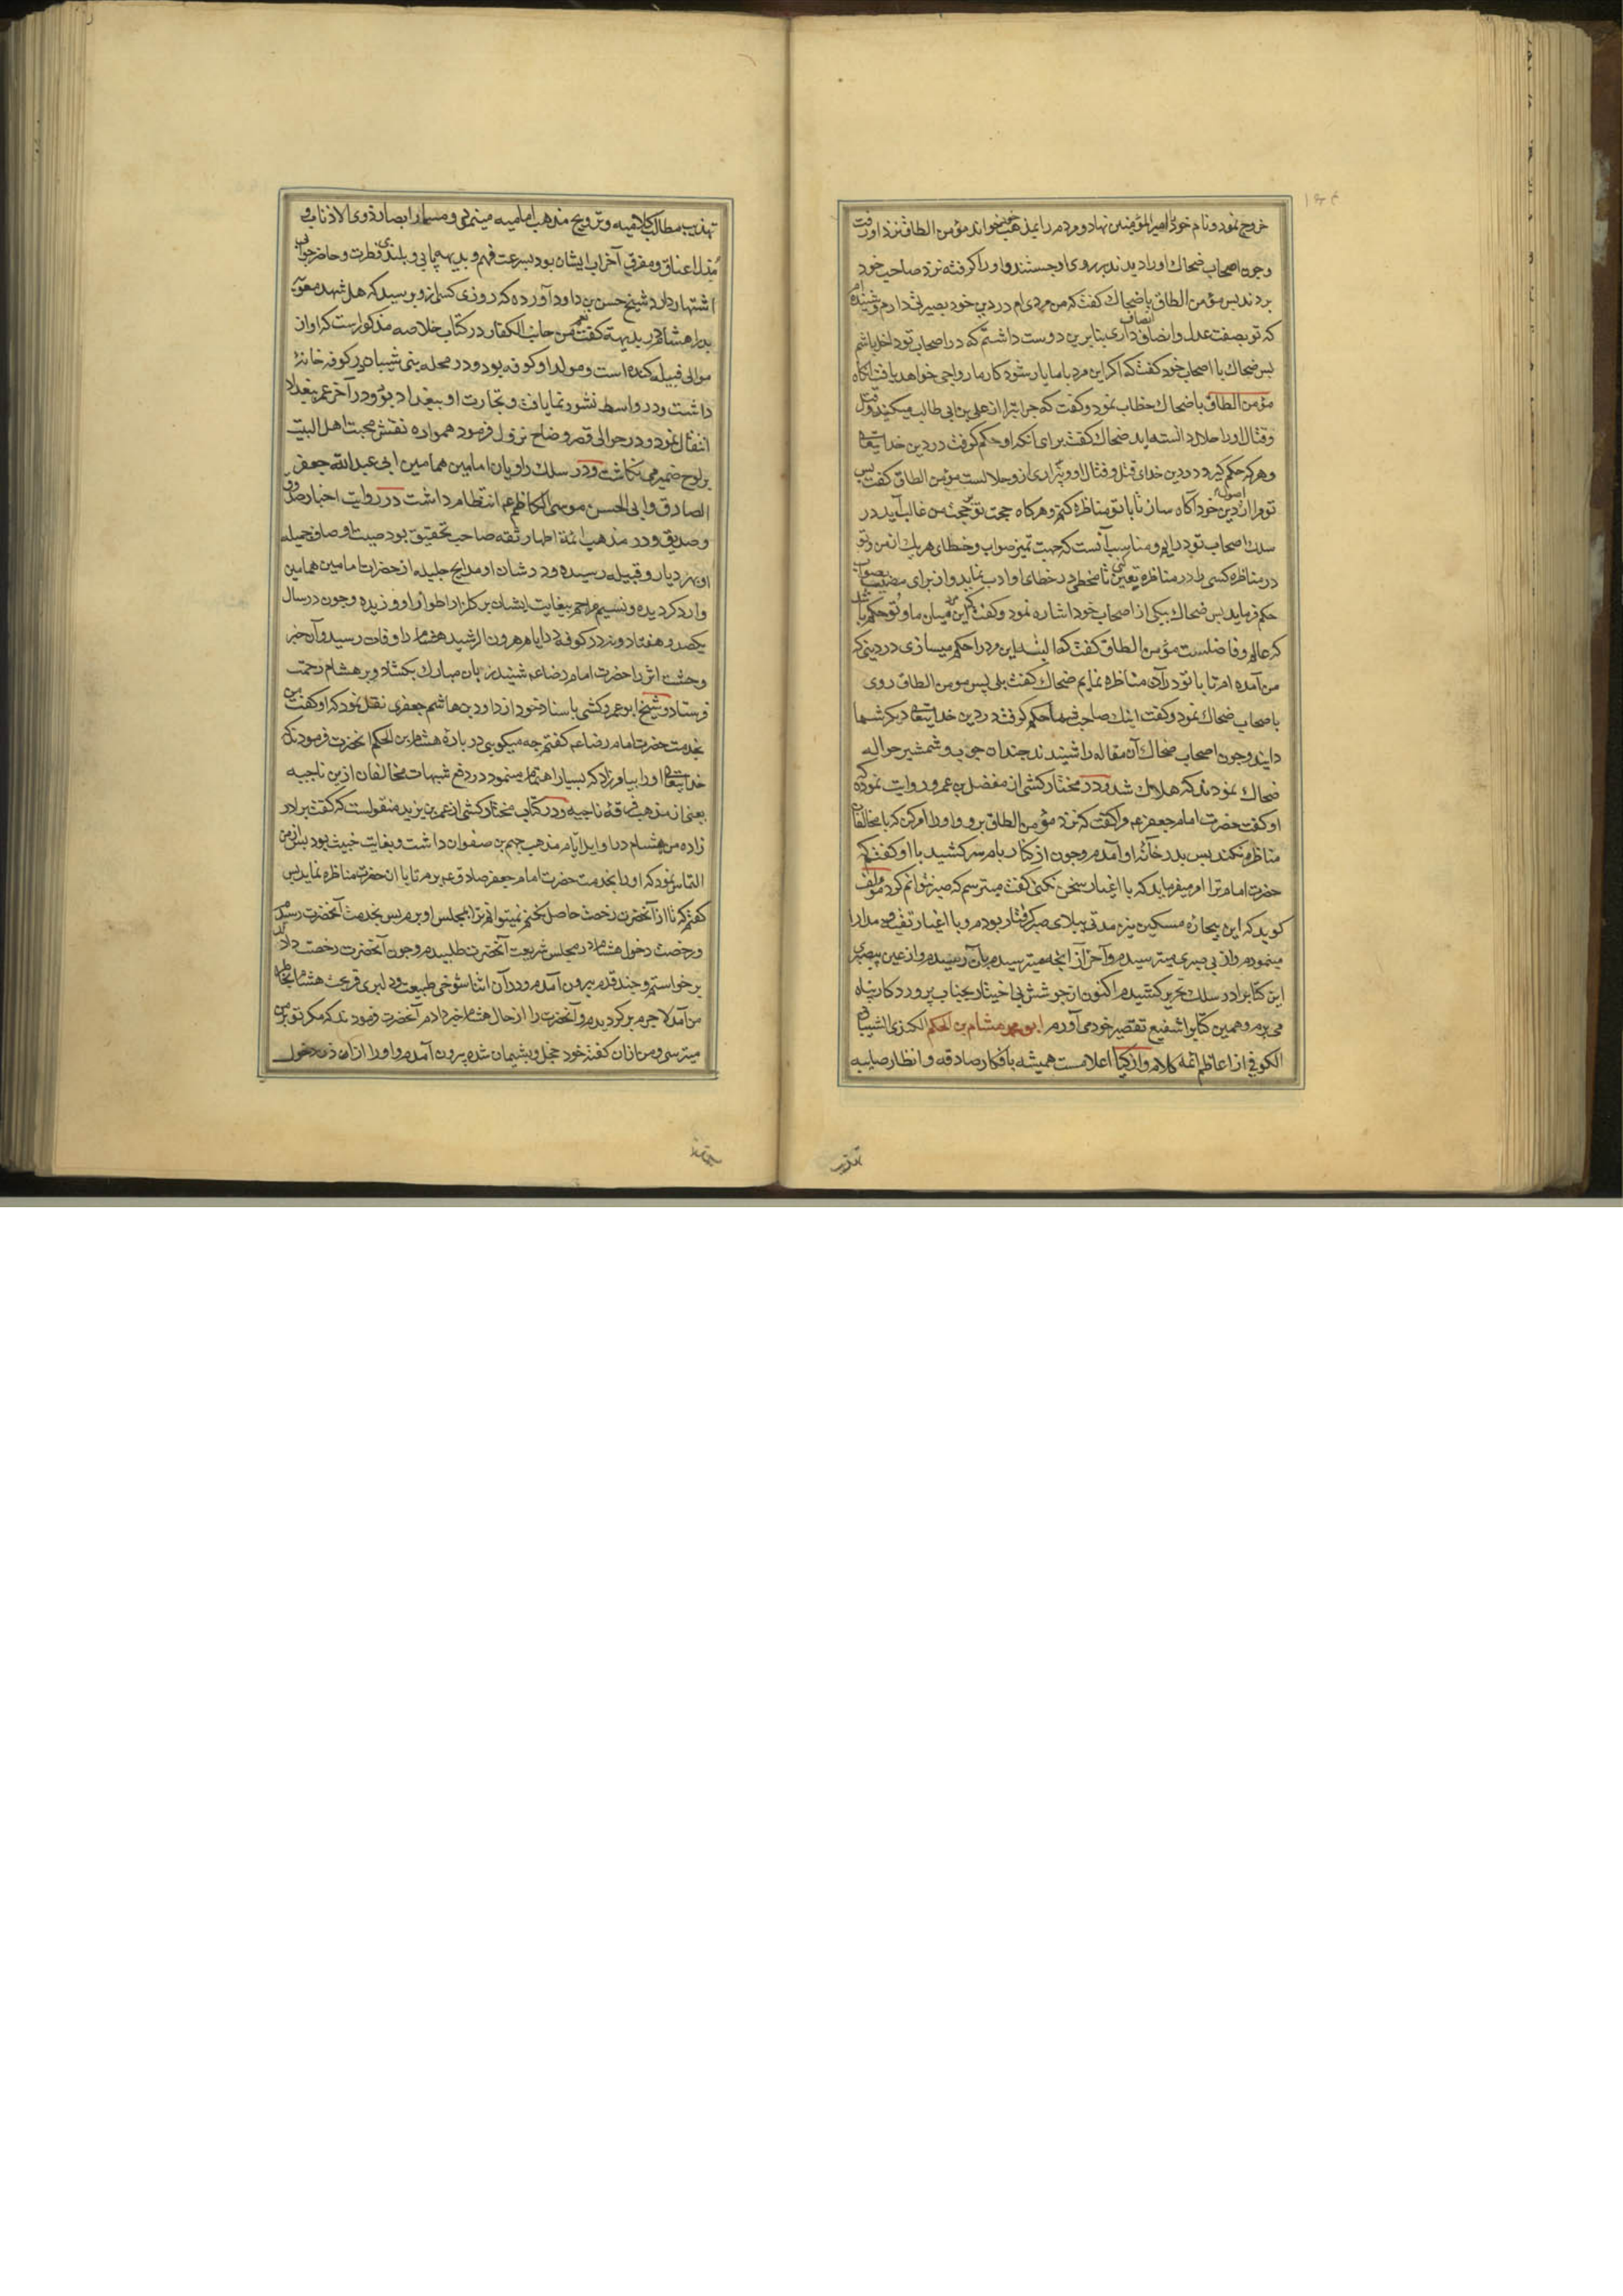 خروج نمود و نام خود امیرالمؤمنین نهاد و مردم را بمذهب خود میخواند مؤمن الطاق نزد او رفت
و چون اصحاب ضحاك او را دیدند بر روی او جستند و او را کرفته نزد صاحب خود
بردند پس مؤمن الطاق با ضحاك کفت که من مردی ام در دین خود بصیرتی دارم و شنیده ام
که تو بصفت عدل و انصاف داری بنابرین دوست داشتم که در اصحاب تو داخل باشم
پس ضحاك با اصحاب خود کفت که اکر این مرد با ما یار شود کار ما رواجی خواهد یافت آنکاه
مؤمن الطاق با ضحاك خطاب نمود و کفت که چرا تبرا از علی بن ابی طالب میکنید و قتل
و قتال او را حلال دانسته اید ضحاك کفت برای آنکه او حکم کرفت در دین خدایتعالی
و هر که حکم کیرد در دین خدای قتل و قتال او و بیزاری ازو حلالست مؤمن الطاق کفت پس
تو مرا از اصول دین خود آکاه ساز تا با تو مناظره کنم و هرکاه حجت تو بر حجت من غالب آید در
سلك اصحاب تو درایم و مناسب آنست که جهت تمیز صواب و خطای هر یك از من و تو
در مناظره کسی را تعیین کنی تا مخطی در خطای او ادب نماید و از برای مصیب بصواب
حکم فرماید پس ضحاك بیکی از اصحاب خود اشاره نمود و کفت که این مرد میان ما و تو حکم باشد
که عالم و فاضلست مؤمن الطاق کفت که البته این مرد را حکم میسازی در دینی که
من آمده ام تا با تو در آن مناظره نمایم ضحاك کفت بلی پس مومن الطاق روی
باصحاب ضحاك نمود و کفت اینك صاحب شما حکم کرفت در دین خدایتعالی دیکر شما
دانید و چون اصحاب ضحاك آن مقاله را شنیدند چندان چوب و شمشیر حواله
ضحاك نمودند که هلاك شد و در مختار کشی از مفضل بن عمرو روایت نموده که
او کفت حضرت امام جعفر عم مرا کفت که نزد مؤمن الطاق برو و او را امر کن که با مخالفان
مناظره نکند پس بدر خانۀ او آمدم و چون از کنار بام سر کشید با او کفتم که
حضرت امام ترا امر میفرماید که با اغیار سخن نکنی کفت میترسم که صبر نتوانم کرد مؤلف
کوید که این بیچاره مسکین نیز مدتی ببلای صبر کرفتار بودم و با اغیار تقیه و مدارا
مینمودم و از بی صبری میترسیدم و آخر از آنچه میترسیدم بآن رسیدم و از عین بیصبری
این کتابرا در سلك تحریر کشیدم اکنون از جوشش بی اختیار بجناب پروردکار پناه
می برم و همین کتابرا شفیع تقصیر خود می آورم ابو محمد هشام بن الحکم الکندی الشیبانی
الکوفی از اعاظم ائمه کلام و ازکیاء اعلامست همیشه بافکار صادقه و انظار صایبه
تهذیب
تهذیب مطالب کلامیه و ترویج مذهب امامیه مینمود و مسمار ابصار ذوی الاذناب و
مذل اعناق و مفرق احزاب ایشان بود بسرعت فهم و بدیهه یابی و بلندی فطرت و حاضر جوابی
اشتهار دارد شیخ حسن بن داود آورده که روزی کسی ازو پرسید که هل شهد معویة
بدرا هشام در بدیهه کفت نعم من جانب الکفار در کتاب خلاصه مذکورست که او از
موالی قبیله کنده است و مولد او کوفه بود و در محله بنی شیبان در کوفه خانه
داشت و در واسط نشو و نما یافت و تجارت او ببغداد بود و در آخر عمر ببغداد
انتقال نمود و در حوالی قصر وضاح نزول فرمود همواره نقش محبت اهل البیت
بر لوح ضمیر می نکاشت و در سلك راویان امامین همامین ابی عبدالله جعفر
الصادق و ابی الحسن موسی الکاظم عم انتظام داشت در روایت اخبار صادق
و صدیق و در مذهب ائمۀ اطهار ثقه صاحب تحقیق بود صیت اوصاف جمیله
او بهر دیار و قبیله رسیده و در شان او مدایح جلیله از حضرات امامین همامین
وارد کردیده و نسیم مراحم بیغایت ایشان بر کلزار اطوار او وزیده و چون در سال
یکصد و هفتاد و نه در کوفه در ایام هرون الرشید هشام را وفات رسید و آن خبر
وحشت اثر را حضرت امام رضا عم شنید زبان مبارك بکشاد و بر هشام رحمت
فرستاد و شیخ ابو عمرو کشی باسناد خود از داود بن هاشم جعفری نقل نمود که او کفت من
بخدمت حضرت امام رضا عم کفتم چه میکویی در بارۀ هشام بن الحکم آنحضرت فرمودند که
خدایتعالی او را بیامرزاد که بسیار اهتمام مینمود در دفع شبهات مخالفان ازین ناجیه
یعنی از مذهب فرقۀ ناجیه و در کتاب مختار کشی از عمر بن یزید منقولست که کفت برادر
زاده من هشام در اوایل ایام مذهب جهم بن صفوان داشت و بغایت خبیث بود پس از من
التماس نمود که او را بخدمت حضرت امام جعفر صادق عم برم تا با آن حضرت مناظره نماید پس
کفتم که تا از آنحضرت رخصت حاصل نکنم نمیتوانم ترا بمجلس او برم پس بخدمت آنحضرت رسیدم
و رخصت دخول هشام در مجلس شریعت آنحضرت طلبیدم و چون آنحضرت رخصت داد
برخواستم و چند قدم بیرون آمدم و در آن اثنا شوخی طبیعت و دلیری قریحت هشام بخاطر
من آمد لاجرم برکردیدم و آنحضرت را از حال هشام خبر دادم آنحضرت فرمودند که مکر تو بر من
میترسی و من ازان کفتۀ خود خجل و پشیمان شده بیرون آمدم و او را از اذن دخول